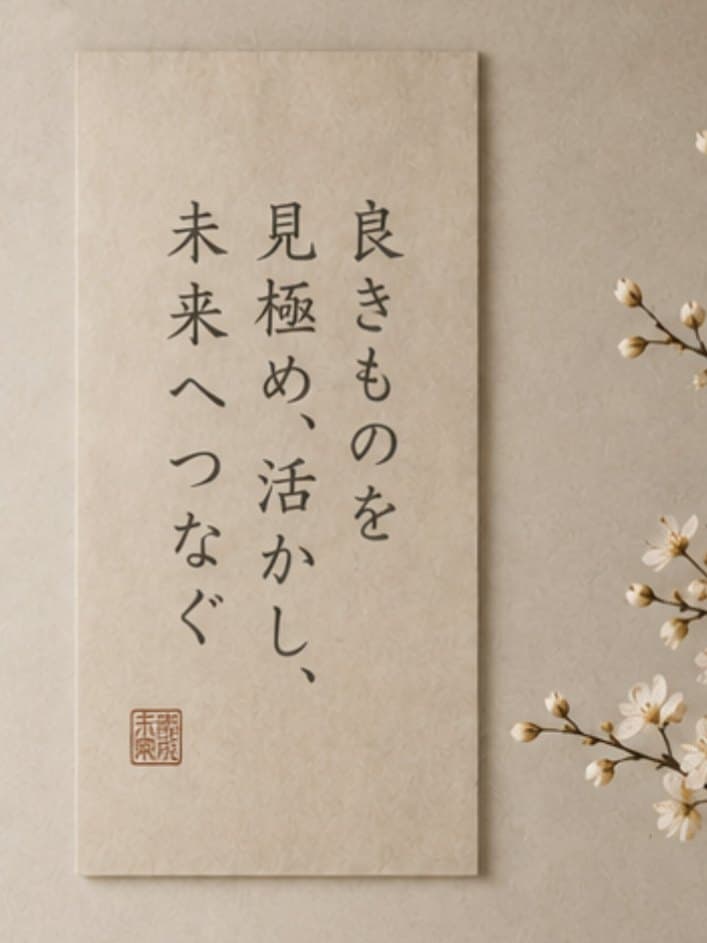 良きものを
見極め、活かし、
未来へつなぐ